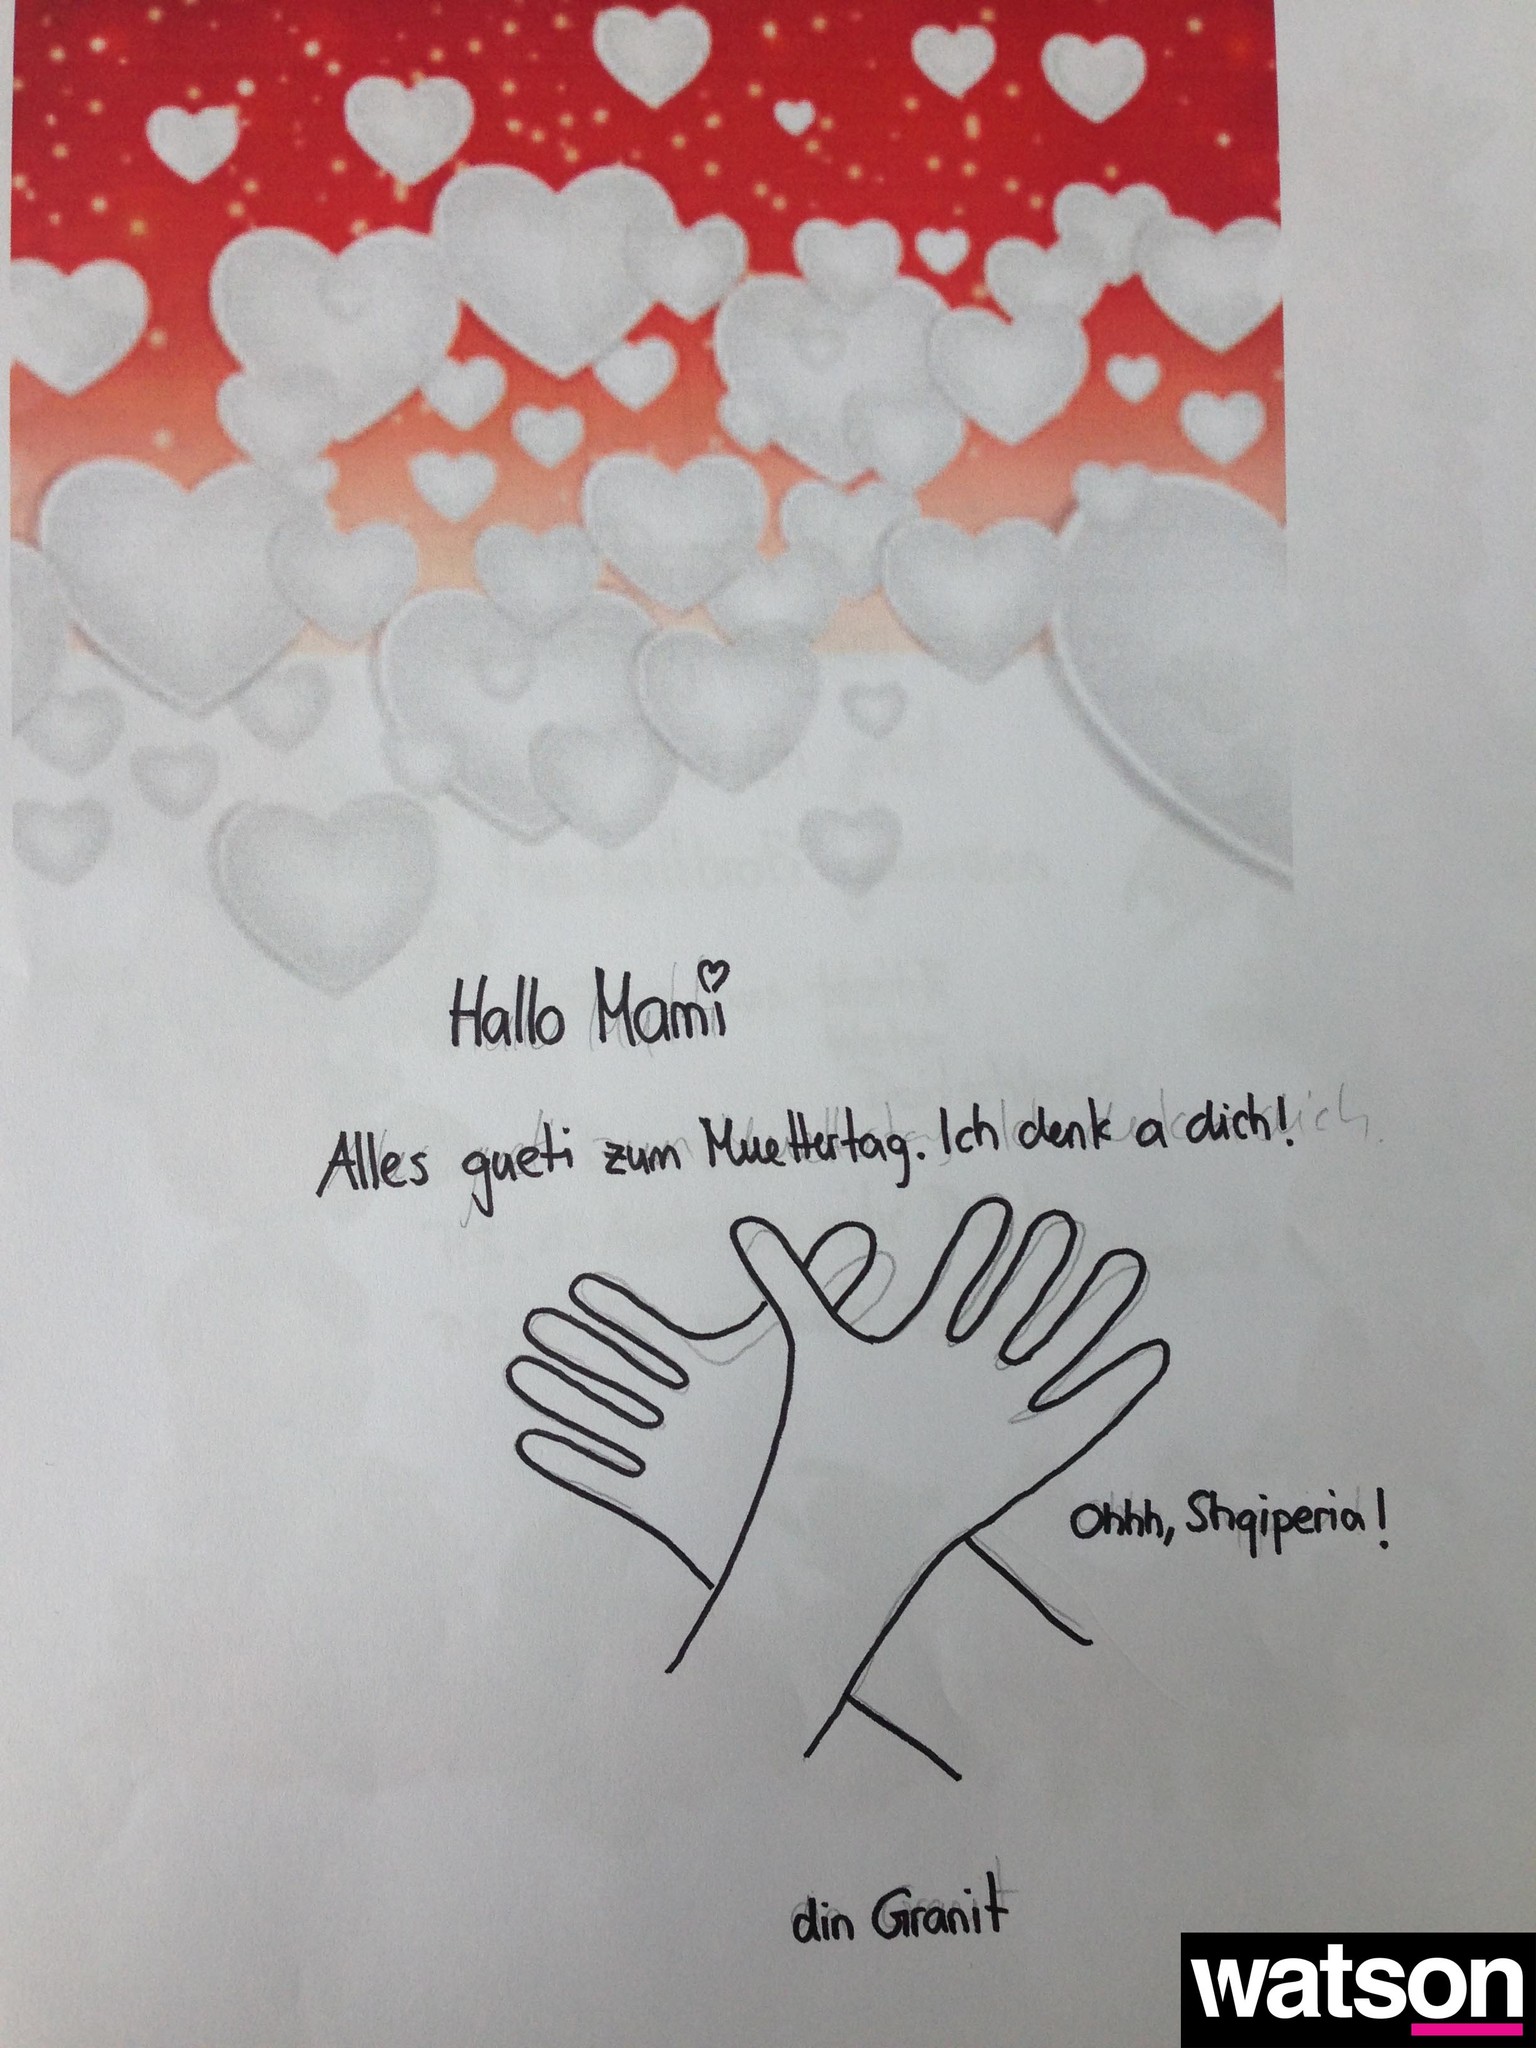 Hallo Mami
Alles gueti zum Muettertag. Ich denk a dich!
Ohhh, Shqiperia!
din Granit
watson